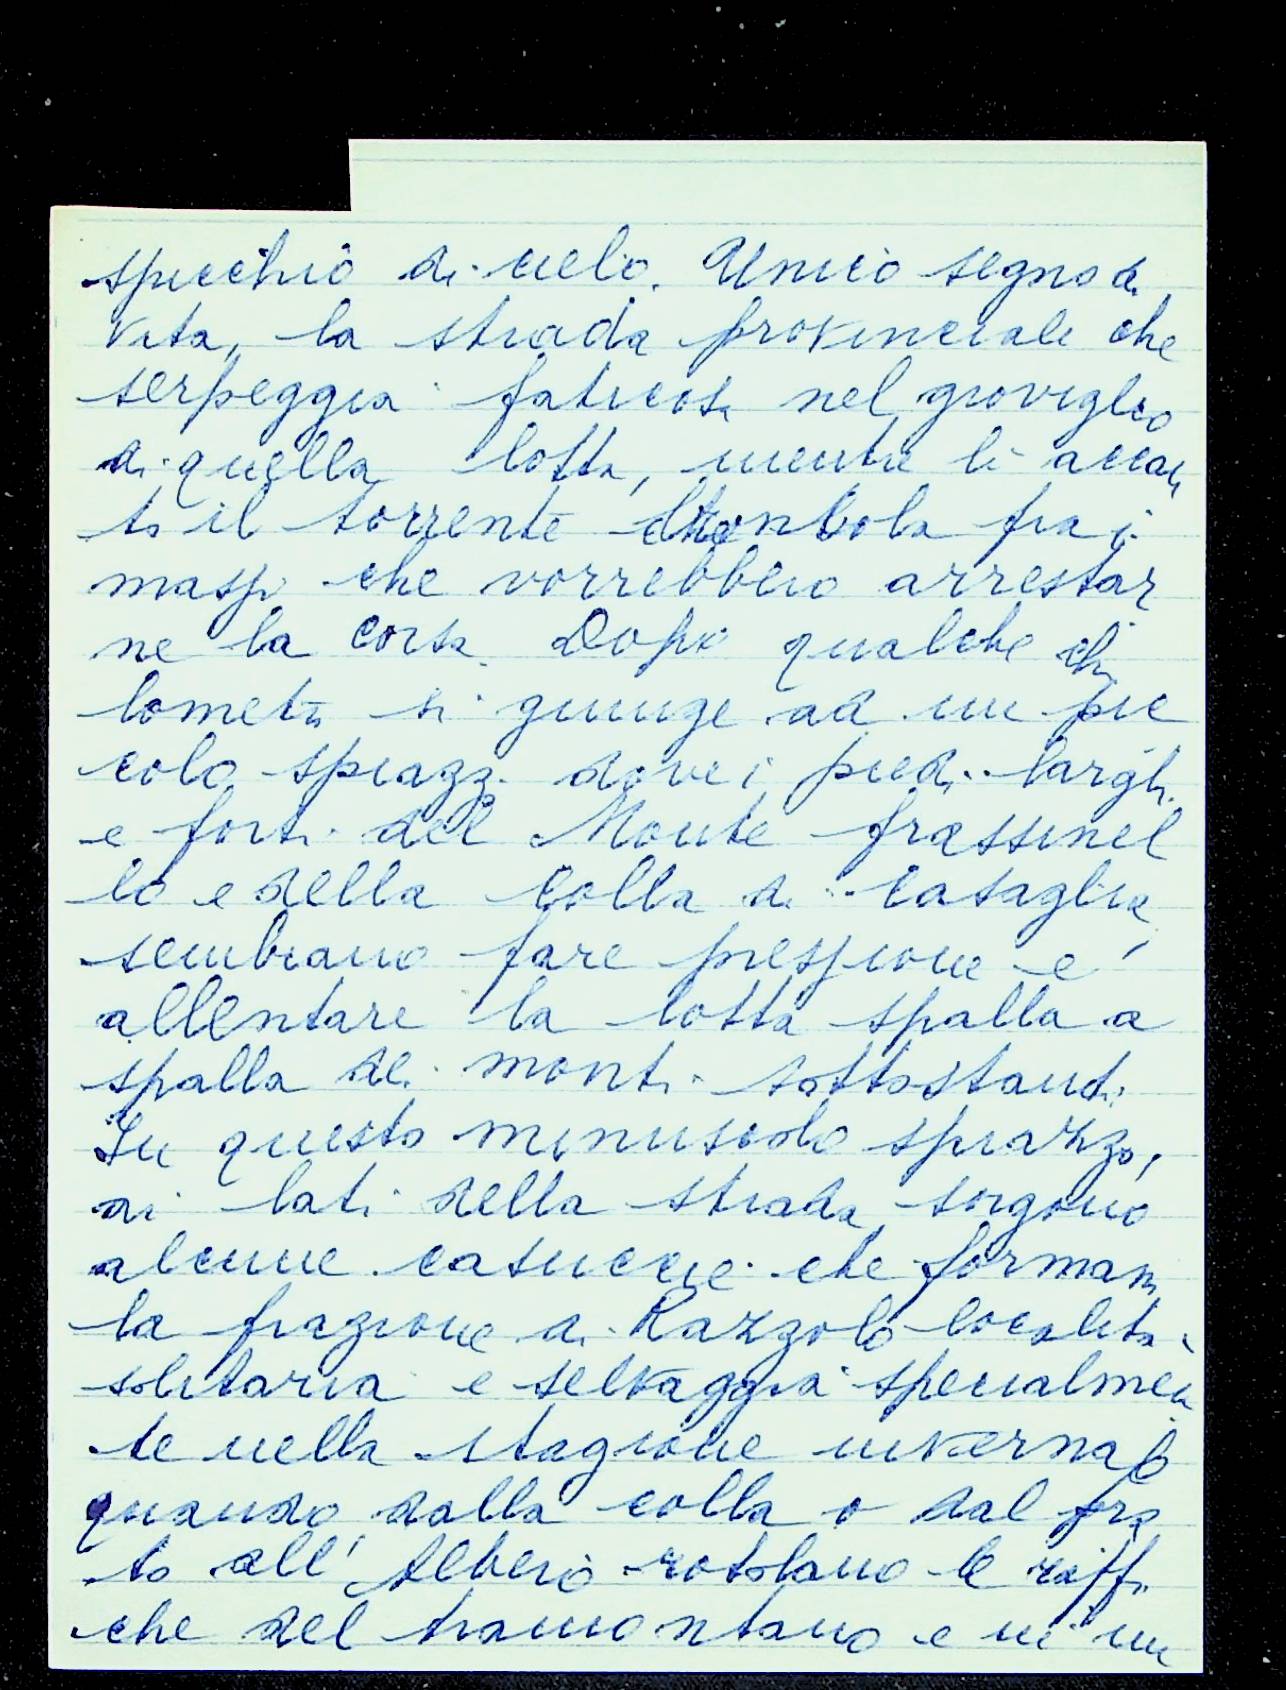 specchio di cielo. Unico segno di
vita, la strada provinciale che
serpeggia faticosa nel groviglio
di quella lotta, mentre lì accan
to il torrente rombola fra i
massi che vorrebbero arrestar
ne la corsa. Dopo qualche chi
lometro si giunge ad un pic
colo spiazzo dove i piedi larghi
e forti del Monte Frassinel
lo e della Colla di Casaglia
sembrano fare pressione e
allentare la lotta spalla a
spalla dei monti sottostanti.
In questo minuscolo spiazzo,
ai lati della strada, sorgono
alcune casuccie che formano
la frazione di Razzolo località
solitaria e selvaggia specialmen
te nella stagione invernale
quando dalla colla o dal pra
to all'Albero rotolano le raffi
che del tramontano e in un